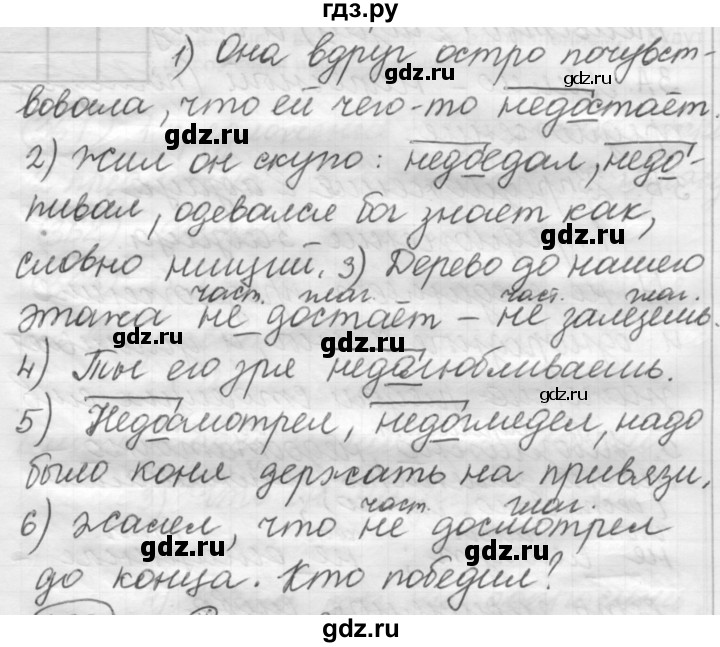 гдз.ру
1) Она вдруг остро почувст-
gdz.ru
вовала, что ей чего-то недостаёт.
gdz.ru
2) Жил он скупо: недоедал, недо-
пивал, одевался бог знает как,
gdz.ru
словно нищий. 3) Дерево до нашего
част. глаг. част. глаг.
этажа не достаёт – не залезешь.
gdz.ru gdz.ru
4) Ты его зря недолюбливаешь.
gdz.ru
5) Недосмотрел, недоглядел, надо
было коня держать на привязи.
част. глаг.
6) Жалел, что не досмотрел
gdz.ru gdz.ru
до конца. Кто победил?
gdz.ru